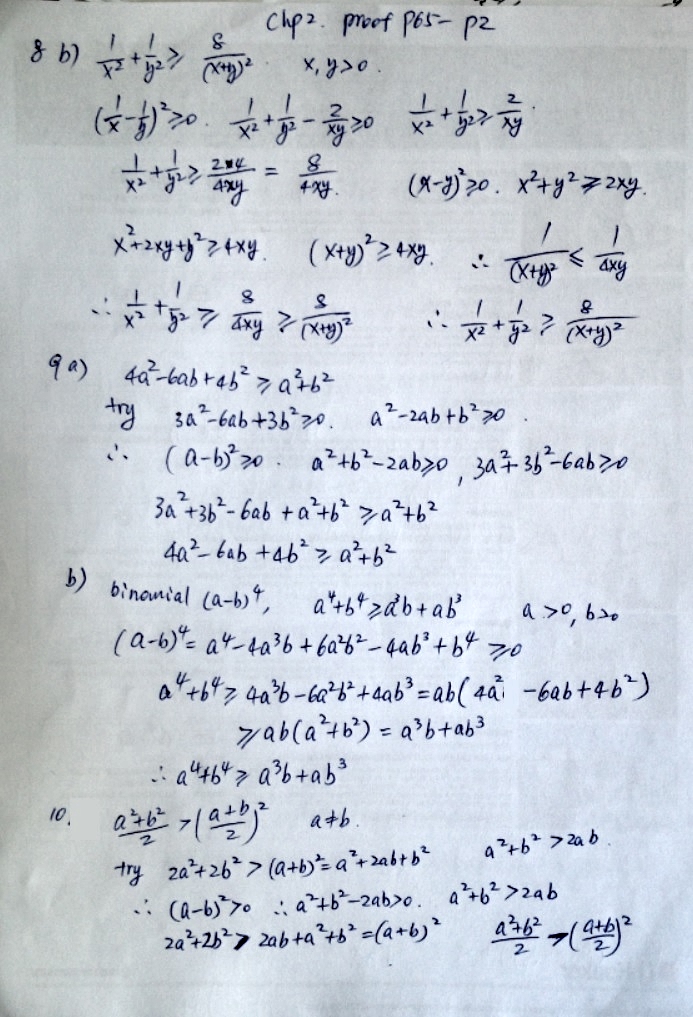 Chp 2. proof P65- P2
8 b) 1/x² + 1/y² ≥ 8/(x+y)² x, y>0.
(1/x - 1/y)² ≥0. 1/x² + 1/y² - 2/xy ≥0 1/x² + 1/y² ≥ 2/xy.
1/x² + 1/y² ≥ 2×4/4xy = 8/4xy. (x-y)² ≥0. x²+y² ≥ 2xy.
x²+2xy+y² ≥ 4xy. (x+y)² ≥ 4xy. ∴ 1/(x+y)² ≤ 1/4xy
∴ 1/x² + 1/y² ≥ 8/4xy ≥ 8/(x+y)² ∴ 1/x² + 1/y² ≥ 8/(x+y)²
9 a) 4a²-6ab+4b² ≥ a²+b²
try 3a²-6ab+3b² ≥0. a²-2ab+b² ≥0.
∴ (a-b)² ≥0. a²+b²-2ab ≥0, 3a²+3b²-6ab ≥0
3a²+3b²-6ab+a²+b² ≥ a²+b²
4a²-6ab+4b² ≥ a²+b²
b) binomial (a-b)⁴, a⁴+b⁴ ≥ a³b+ab³ a>0, b>0
(a-b)⁴ = a⁴-4a³b+6a²b²-4ab³+b⁴ ≥0
a⁴+b⁴ ≥ 4a³b-6a²b²+4ab³ = ab(4a² -6ab+4b²)
≥ ab(a²+b²) = a³b+ab³
∴ a⁴+b⁴ ≥ a³b+ab³
10. a²+b²/2 > (a+b/2)² a≠b.
try 2a²+2b² > (a+b)² = a²+2ab+b² a²+b² > 2ab.
∴ (a-b)² >0 ∴ a²+b²-2ab>0. a²+b² > 2ab
2a²+2b² > 2ab+a²+b² = (a+b)² a²+b²/2 > (a+b/2)²